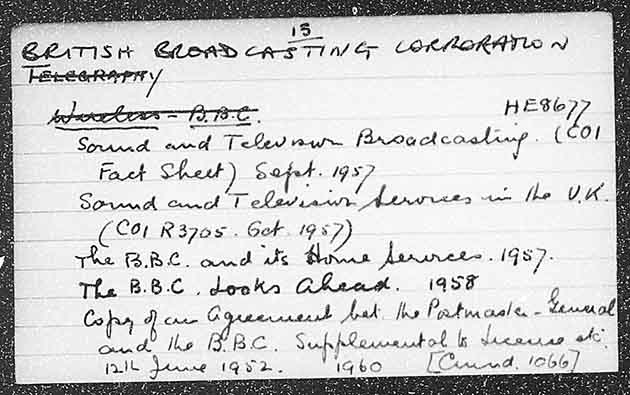 15
BRITISH BROADCASTING CORPORATION
TELEGRAPHY
Wireless - B.B.C.
HE8677
Sound and Television Broadcasting. (COI
Fact Sheet) Sept. 1957
Sound and Television Services in the U.K.
(COI R3705. Oct. 1957)
The B.B.C. and its Home Services. 1957.
The B.B.C. Looks Ahead. 1958
Copy of an Agreement bet. the Postmaster-General
and the B.B.C. Supplemental to Licence etc.
12th June 1952. 1960 [Cmnd. 1066]